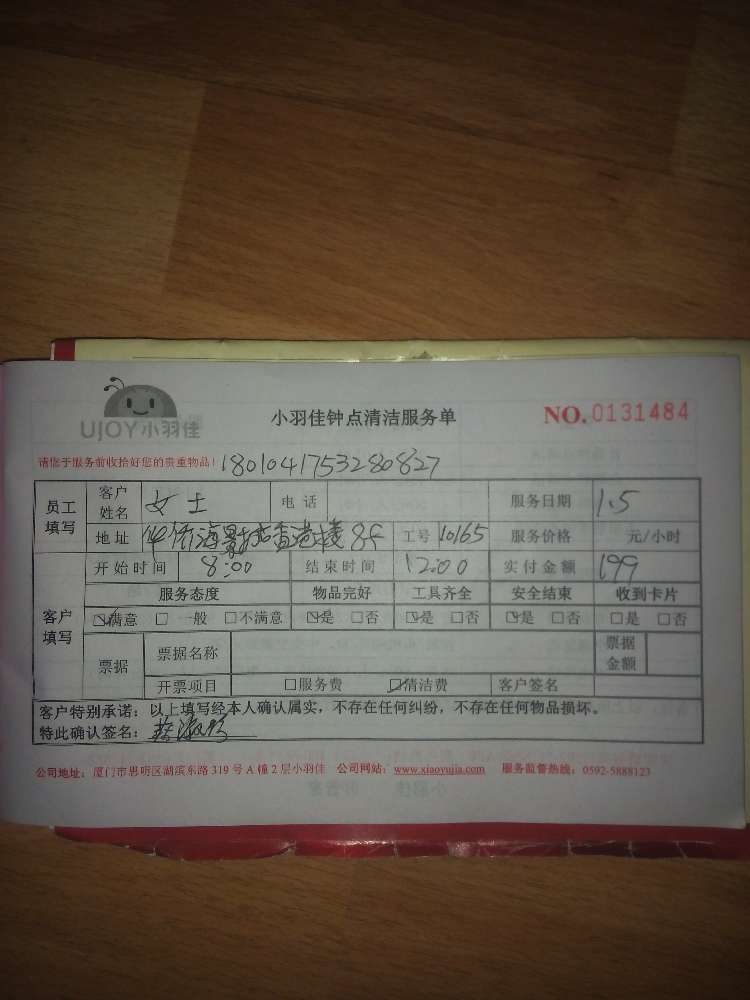 UJOY小羽佳
小羽佳钟点清洁服务单
NO.0131484
请您于服务前收拾好您的贵重物品！1801041753280827
员工填写 客户姓名 女士 电话 服务日期 1.5
地址 侨海景 8F 工号 10165 服务价格 元/小时
客户填写 开始时间 8:00 结束时间 12:00 实付金额 199
服务态度 物品完好 工具齐全 安全结束 收到卡片
☑满意 □一般 □不满意 ☑是 □否 ☑是 □否 ☑是 □否 □是 □否
票据 票据名称 票据金额
开票项目 □服务费 ☑清洁费 客户签名
客户特别承诺：以上填写经本人确认属实，不存在任何纠纷，不存在任何物品损坏。
特此确认签名：
公司地址：厦门市思明区湖滨东路319号A幢2层小羽佳 公司网站：www.xiaoyujia.com 服务监督热线：0592-5888123